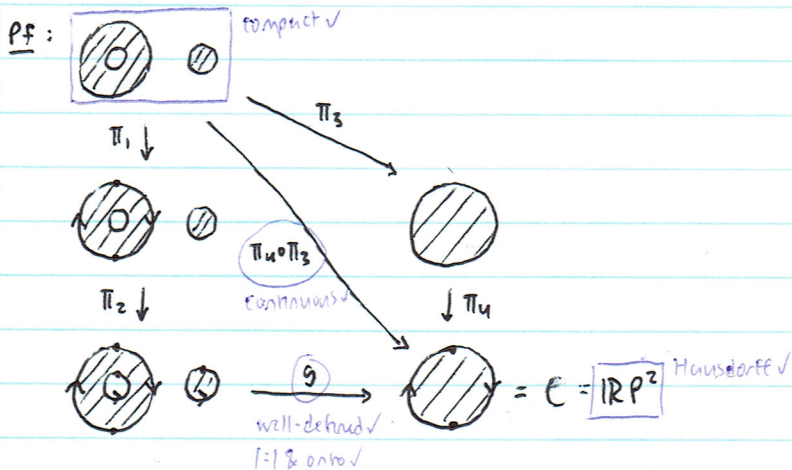 Pf:
compact ✓
π₁ ↓
π₃
π₄∘π₃
continuous ✓
π₂ ↓
↓ π₄
g
well-defined ✓
1=1 & onto ✓
= C = ℝP²
Hausdorff ✓